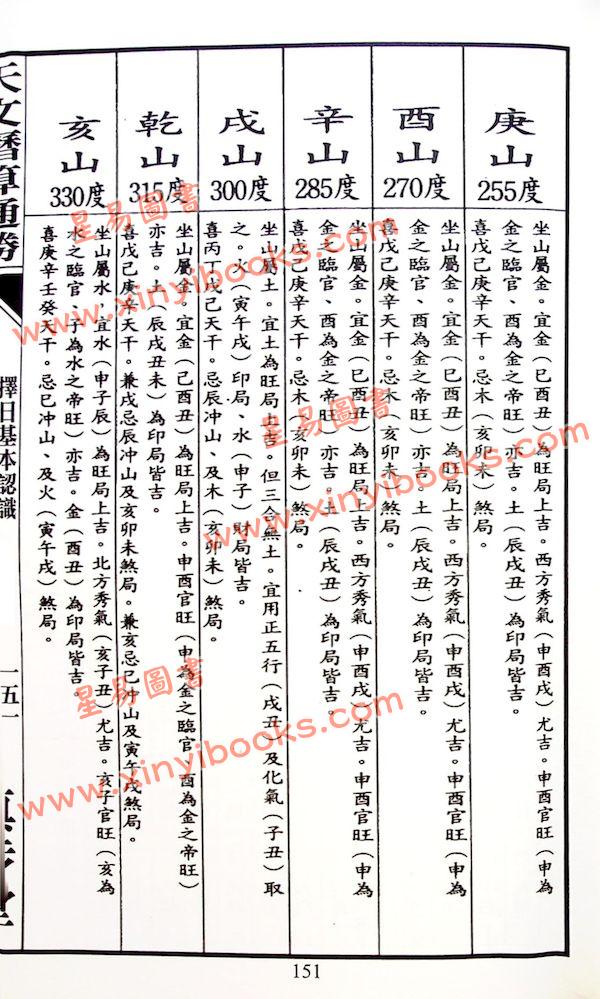 庚山
255度
坐山屬金。宜金（巳酉丑）為旺局上吉。西方秀氣（申酉戌）尤吉。申酉官旺（申為
金之臨官、酉為金之帝旺）亦吉。土（辰戌丑）為印局皆吉。
喜戊己庚辛天干。忌木（亥卯未）煞局。
酉山
270度
坐山屬金。宜金（巳酉丑）為旺局上吉。西方秀氣（申酉戌）尤吉。申酉官旺（申為
金之臨官、酉為金之帝旺）亦吉。土（辰戌丑）為印局皆吉。
喜戊己庚辛天干。忌木（亥卯未）煞局。
辛山
285度
坐山屬金。宜金（巳酉丑）為旺局上吉。西方秀氣（申酉戌）尤吉。申酉官旺（申為
金之臨官、酉為金之帝旺）亦吉。土（辰戌丑）為印局皆吉。
喜戊己庚辛天干。忌木（亥卯未）煞局。
戌山
300度
坐山屬土。宜土為旺局上吉。但三合無土。宜用正五行（戌丑）及化氣（子丑）取
之。火（寅午戌）印局、水（申子）財局皆吉。
喜丙丁戊己天干。忌辰冲山、及木（亥卯未）煞局。
乾山
315度
坐山屬金。宜金（巳酉丑）為旺局上吉。申酉官旺（申為金之臨官、酉為金之帝旺）
亦吉。土（辰戌丑未）為印局皆吉。
喜戊己庚辛天干。兼戌忌辰冲山及亥卯未煞局。兼亥忌巳冲山及寅午戌煞局。
亥山
330度
坐山屬水，宜水（申子辰）為旺局上吉。北方秀氣（亥子丑）尤吉。亥子官旺（亥為
水之臨官、子為水之帝旺）亦吉。金（酉丑）為印局皆吉。
喜庚辛壬癸天干。忌巳冲山、及火（寅午戌）煞局。
天文曆算通勝
擇日基本認識
一五一
151
星易圖書
www.xinyibooks.com
星易圖書
www.xinyibooks.com
星易圖書
www.xinyibooks.com